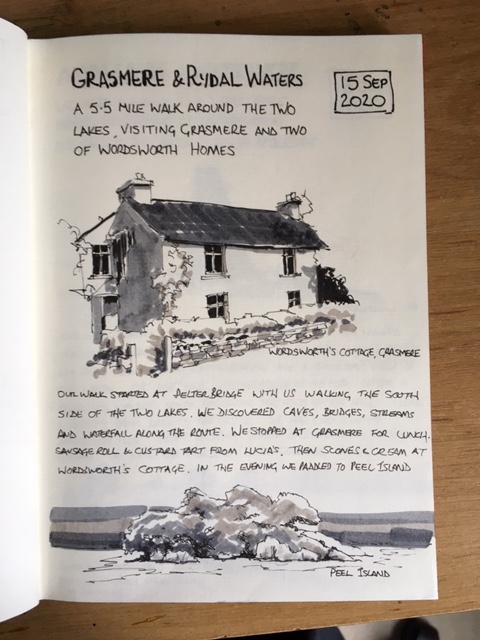 GRASMERE & RYDAL WATERS
15 SEP
2020
A 5.5 MILE WALK AROUND THE TWO
LAKES, VISITING GRASMERE AND TWO
OF WORDSWORTH HOMES
WORDSWORTH'S COTTAGE, GRASMERE
OUR WALK STARTED AT PELTER BRIDGE WITH US WALKING THE SOUTH
SIDE OF THE TWO LAKES. WE DISCOVERED CAVES, BRIDGES, STREAMS
AND WATERFALL ALONG THE ROUTE. WE STOPPED AT GRASMERE FOR LUNCH.
SAUSAGE ROLL & CUSTARD TART FROM LUCIA'S. THEN SCONES & CREAM AT
WORDSWORTH'S COTTAGE. IN THE EVENING WE PADDLED TO PEEL ISLAND
PEEL ISLAND